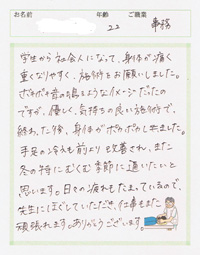 お名前 年齢 ご職業
22 事務
学生から社会人になって、身体が痛く
重くなりやすく、施術をお願いしました。
ボキボキ音の鳴るようなイメージだったの
ですが、優しく、気持ちの良い施術で、
終わった後、身体がポカポカし出ました。
手足の冷えも前よりも改善され、また
冬の特にむくむ季節に通いたいと
思います。日々の疲れもたまっているので、
先生にほぐしていただき、仕事もまた
頑張れます。ありがとうございます。